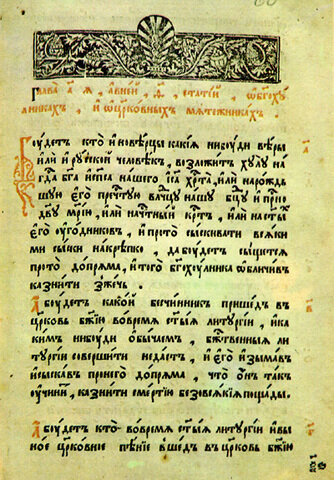 Глава а҃ я , а в ней , ѳ҃ , статей , ѡ бг҃оху
лникахъ , и ѡ цр҃ковныхъ мятежникахъ .
Боудетъ кто иновѣрцы какия нибоуди вѣры
или и рускои человѣкъ , возложитъ хулу на
гд҃а бг҃а и сп҃са нашего іс҃а хр҃та , или на рождь
шую его пречс҃тую влдч҃цу нашу бц҃у и при҃сно
дв҃у мр҃ию , или на чс҃тныи крт҃ъ , или на ст҃ыхъ
его угодниковъ , и про то сыскивати всяки
ми сыски накрѣпко , да боудетъ сыщется
про то допряма , и того бг҃охоулника ѡбличивъ
казнити зжечь .
А боудетъ какои бесчинникъ пришедъ въ
цр҃ковь бж҃ию во время ст҃ыя литургии , и ка
кимъ нибоуди ѡбычаемъ , бж҃ственныя ли
тургии совершити недастъ , и его изымавъ
и сыскавъ про него допряма , что онъ такъ
оучинитъ , казнити смертию безо всякия пощады .
А боудетъ кто во время ст҃ыя литургии и въ ы
ное цр҃ковное пѣние вшедъ въ цр҃ковь бж҃ию